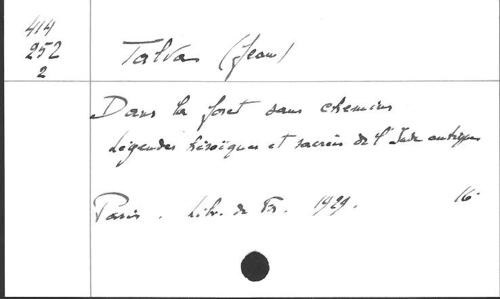 414
252
2
Talva (Jean)
Dans la foret sans chemins
Légendes héroïques et sacrées de l'Inde antique
Paris. Libr. de Fr. 1929. 16°